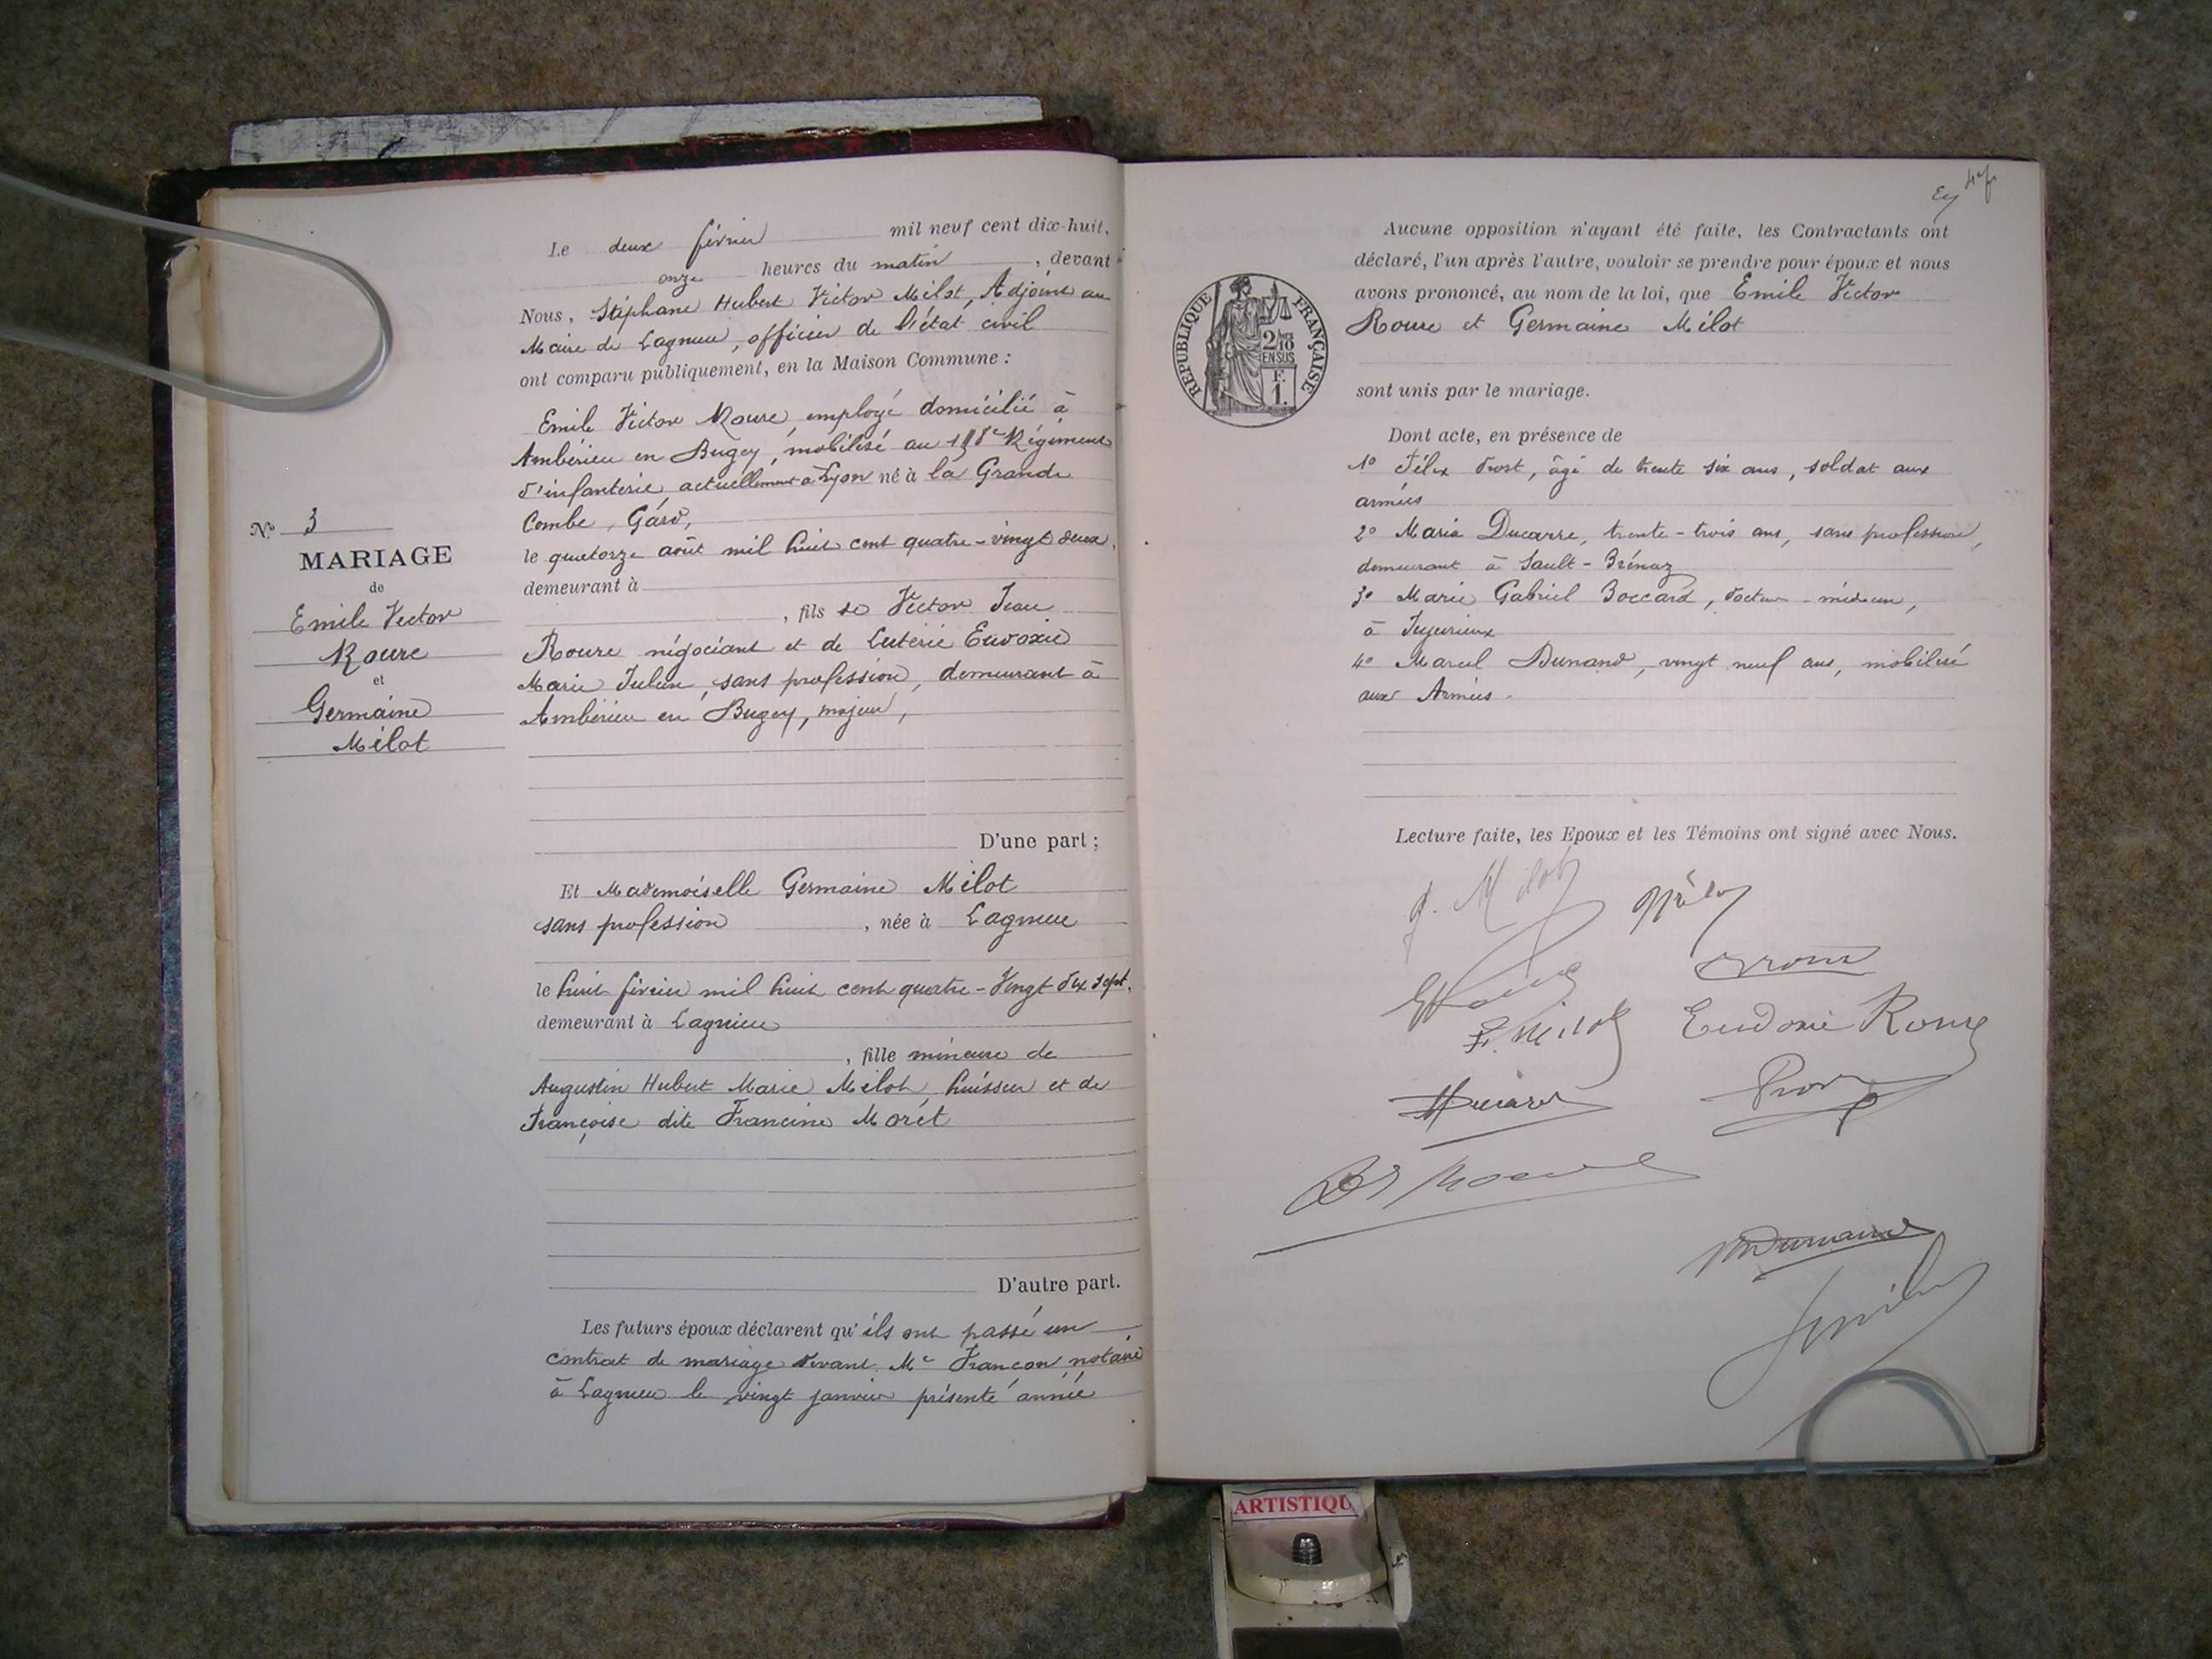 Le deux février mil neuf cent dix-huit,
onze heures du matin, devant
Nous, Stéphane Hubert Victor Milot, Adjoint au
Maire de Lagnieu, officier de l'état civil
ont comparu publiquement, en la Maison Commune :
Emile Victor Roure, employé domicilié à
Ambérieu en Bugey, mobilisé au Régiment
d'infanterie, actuellement à Lyon né à la Grande
Combe, Gard,
le quatorze août mil huit cent quatre-vingt deux,
demeurant à
, fils de Victor Jean
Roure négociant et de Eudoxie
Marie Julien, sans profession, demeurant à
Ambérieu en Bugey, majeur,
D'une part ;
Et Mademoiselle Germaine Milot
sans profession, née à Lagnieu
le huit février mil huit cent quatre-vingt dix sept,
demeurant à Lagnieu
, fille mineure de
Augustin Hubert Marie Milot, huissier et de
Françoise dite Francine Morêt
D'autre part.
Les futurs époux déclarent qu'ils ont passé un
contrat de mariage devant Me Françon notaire
à Lagnieu le vingt janvier présente année
No 3
MARIAGE
de
Emile Victor
Roure
et
Germaine
Milot
Aucune opposition n'ayant été faite, les Contractants ont
déclaré, l'un après l'autre, vouloir se prendre pour époux et nous
avons prononcé, au nom de la loi, que Emile Victor
Roure et Germaine Milot
sont unis par le mariage.
Dont acte, en présence de
1° Félix Prost, âgé de trente six ans, soldat aux
armées
2° Maria Ducarre, trente-trois ans, sans profession,
demeurant à Sault-Brénaz
3° Marie Gabriel Boccard, docteur-médecin,
à Jujurieux
4° Marcel Dunand, vingt neuf ans, mobilisé
aux Armées.
Lecture faite, les Epoux et les Témoins ont signé avec Nous.
G. Milot
F. Milot
Eudoxie Roure
MDucarre
Prost
MDunand
REPUBLIQUE FRANÇAISE
2/10
EN SUS
F.
1.
ARTISTIQU